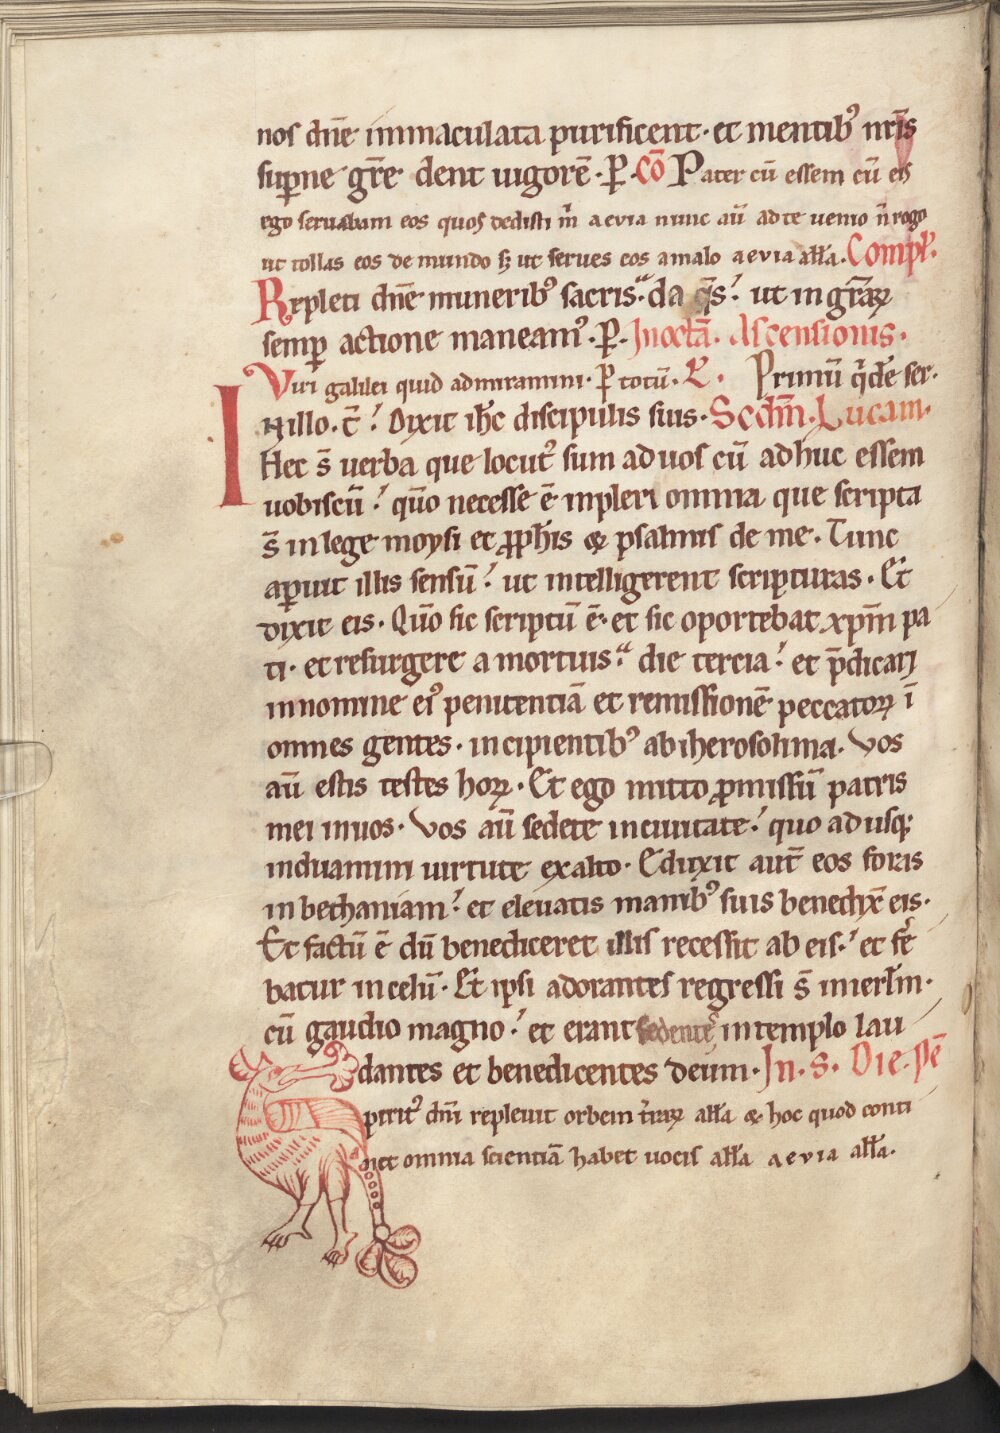 nos dn̄e immaculata purificent· et mentib⁹ nr̄is
sup̄ne gr̄e dent uigorē· P̱· Cō Pater cū essem cū eis
ego seruabam eos quos dedisti m̄ aevia nunc aū ad te uenio n̄ rogo
ut tollas eos de mundo ſꝫ ut serues eos a malo aevia all̄a· Compl̄·
Repleti dn̄e munerib⁹ sacris· da q̄s· ut in gr̄aꝝ
semꝑ actione maneam⁹· P̱· In octā· Ascensionis·
Viri galilei quid admiramini· P̱ totū· E̵· Primū q̄dē ser·
IN illo· t̄· Dixit ih̄c discipulis suis· Secdm̄· Lucam·
Hec s̄ uerba que locut⁹ sum ad uos cū adhuc essem
uobiscū· qūo necesse ē inpleri omnia que scripta
s̄ in lege moysi et ꝓph̄is & psalmis de me· Tunc
aꝑuit illis sensū· ut intelligerent scripturas· Et
dixit eis· Qūo sic scriptū ē· et sic oportebat xpm̄ pa
ti· et resurgere a mortuis· die tercia· et p̄dicari
in nomine ei⁹ penitentiā et remissionē peccatoꝝ ī
omnes gentes· incipientib⁹ ab iherosolima· Vos
aū estis testes hoꝝ· Et ego mitto ꝓmissū patris
mei in uos· Vos aū sedete in ciuitate· quo adusqꝫ
induamini uirtute ex alto· Eduxit aut̄ eos foras
in bethaniam· et eleuatis manib⁹ suis benedix̄ eis·
Et factū ē dū benediceret illis recessit ab eis· et fe͛
batur in celū· Et ipsi adorantes regressi s̄ in ierl̄m·
cū gaudio magno· et erant sedentes in templo lau
dantes et benedicentes deum· In· S· Die· Pē
Spirit⁹ dn̄i repleuit orbem t̄raꝝ all̄a & hoc quod conti
net omnia scientiā habet uocis all̄a aevia all̄a·